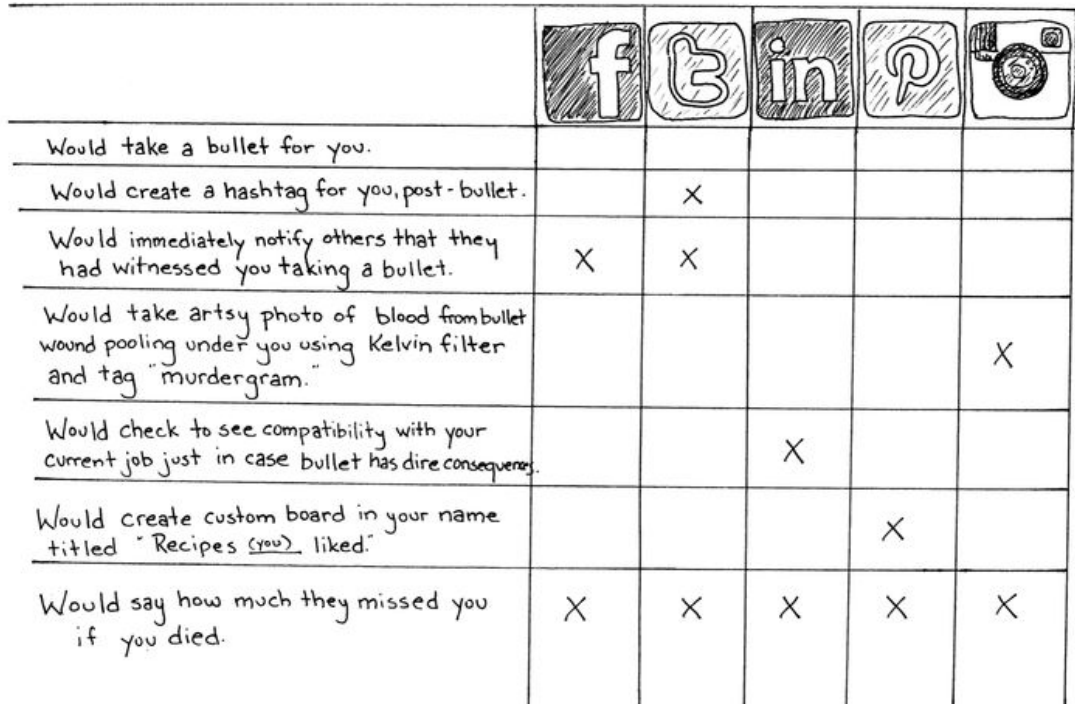 f t in P
Would take a bullet for you.
Would create a hashtag for you, post-bullet.
X
Would immediately notify others that they
had witnessed you taking a bullet.
X X
Would take artsy photo of blood from bullet
wound pooling under you using Kelvin filter
and tag "murdergram."
X
Would check to see compatibility with your
current job just in case bullet has dire consequences.
X
Would create custom board in your name
titled "Recipes (you) liked."
X
Would say how much they missed you
if you died.
X X X X X